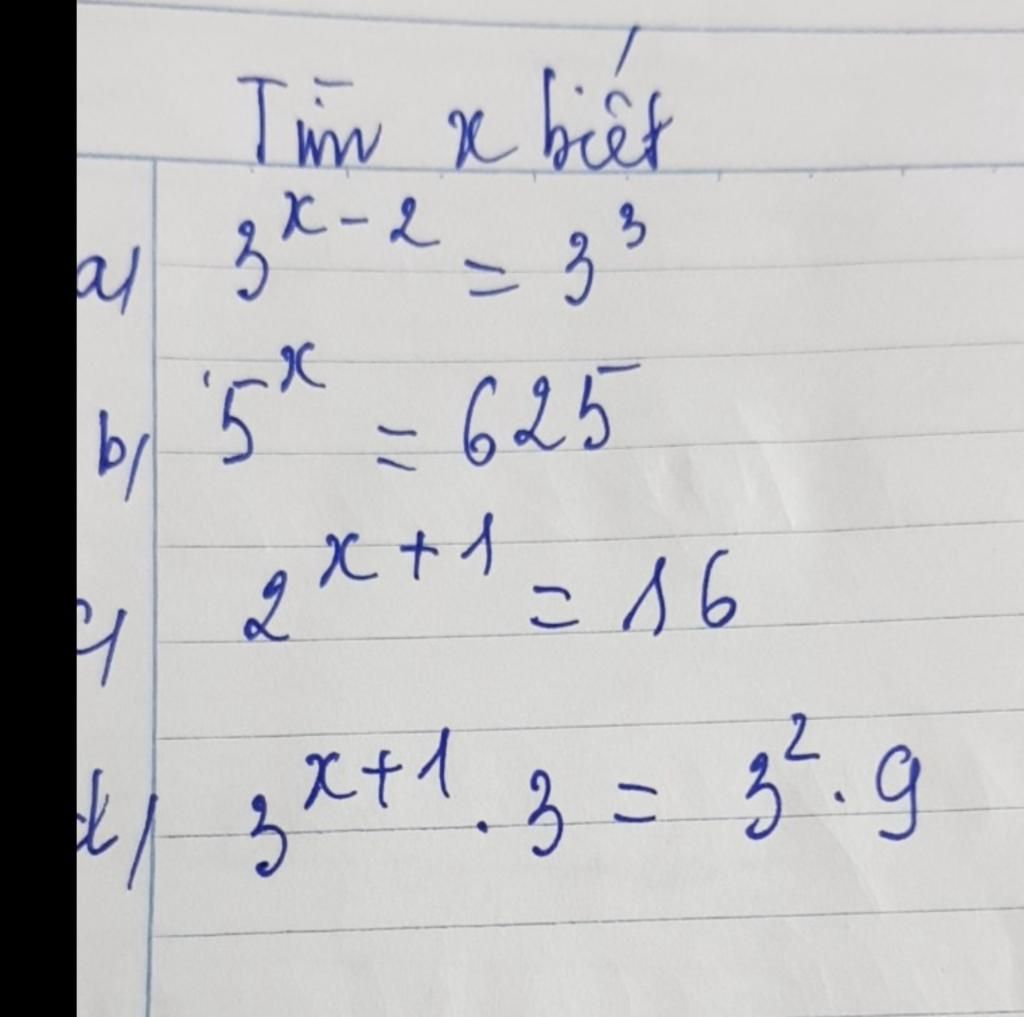 Tìm x biết
a/ 3^{x-2} = 3^3
b/ 5^x = 625
c/ 2^{x+1} = 16
d/ 3^{x+1} . 3 = 3^2 . 9